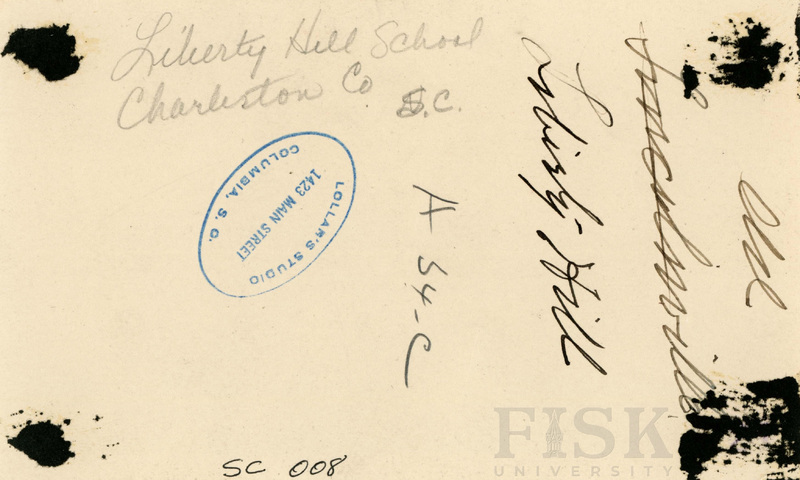 Liberty Hill School
Charleston Co S.C.
LOLLAR'S STUDIO
1423 MAIN STREET
COLUMBIA, S. C.
A 54-C
Liberty Hill
Lincolnville
SC 008
FISK
UNIVERSITY